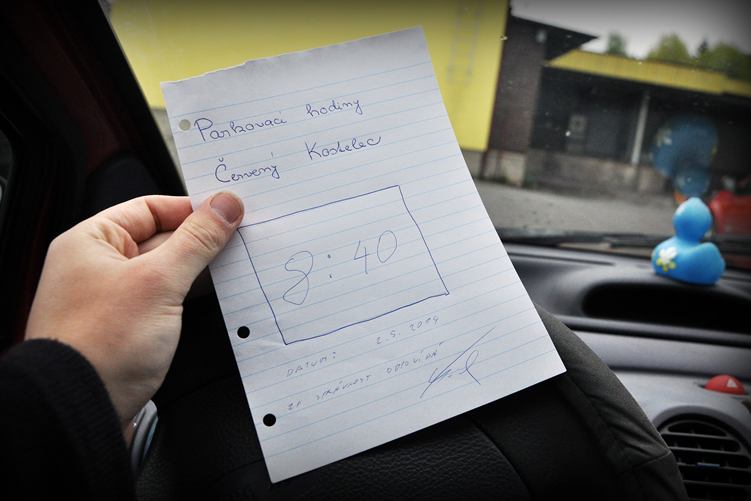 Parkovací hodiny
Červený Kostelec
8:40
DATUM: 2.5. 2014
ZA SPRÁVNOST ODPOVÍDÁ